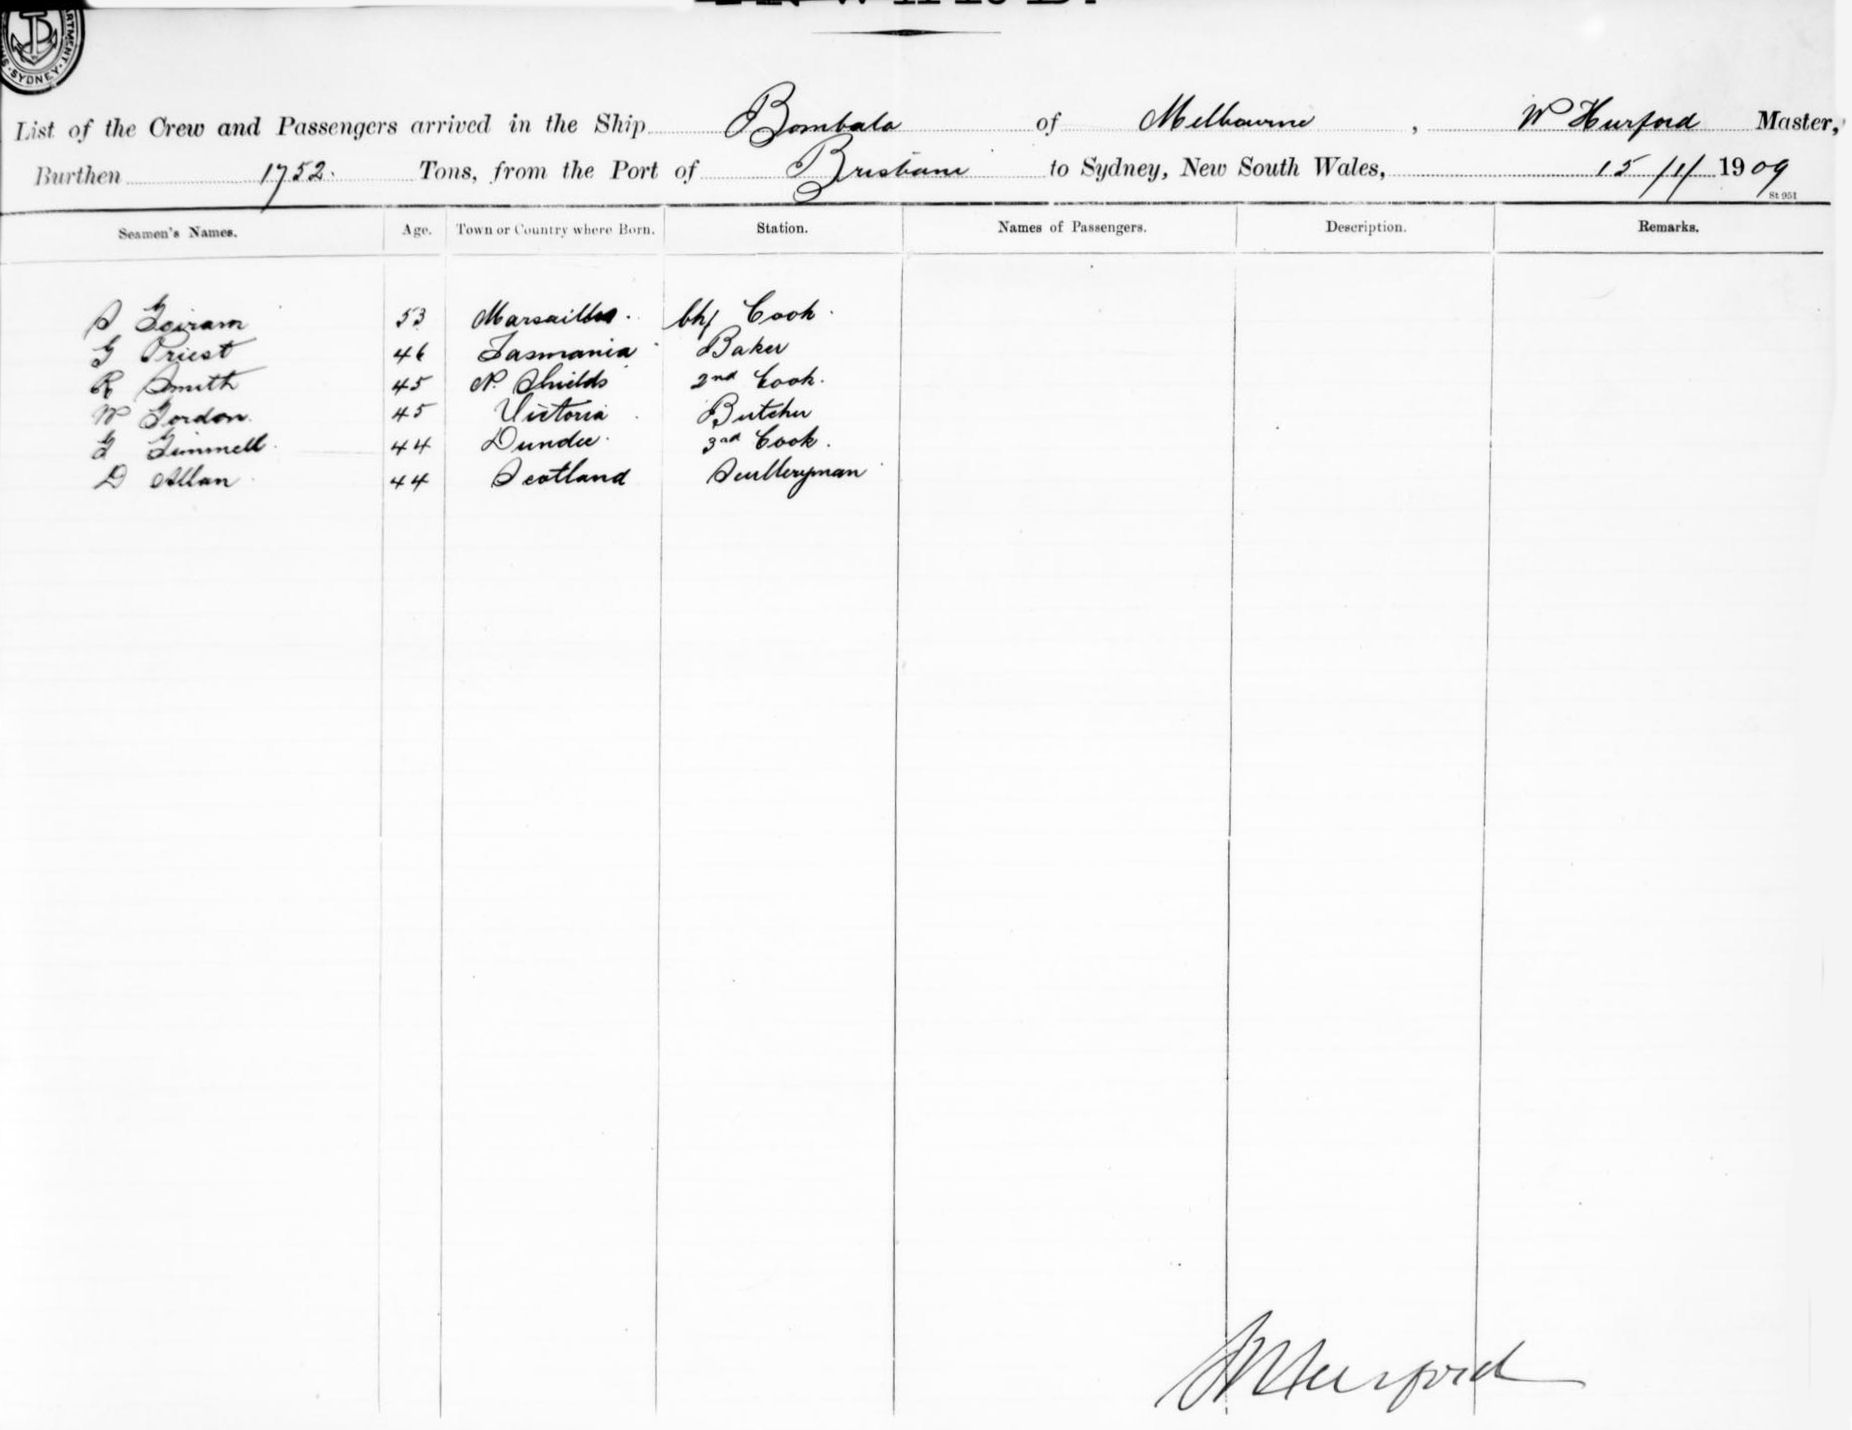 SYDNEY
List of the Crew and Passengers arrived in the Ship Bombala of Melbourne, W Hurford Master,
Burthen 1752. Tons, from the Port of Brisbane to Sydney, New South Wales, 15/11 1909
St 951
Seamen's Names. Age. Town or Country where Born. Station. Names of Passengers. Description. Remarks.
53 Marsailles. Chf Cook.
G Priest 46 Tasmania Baker
R Smith 45 N. Shields 2nd Cook.
W Gordon. 45 Victoria Butcher
G Gimmell 44 Dundee. 3rd Cook.
D Allan 44 Scotland Sculleryman
W Hurford